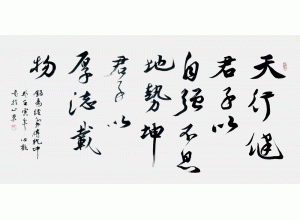 天行健
君子以
自强不息
地勢坤
君子以
厚德載
物